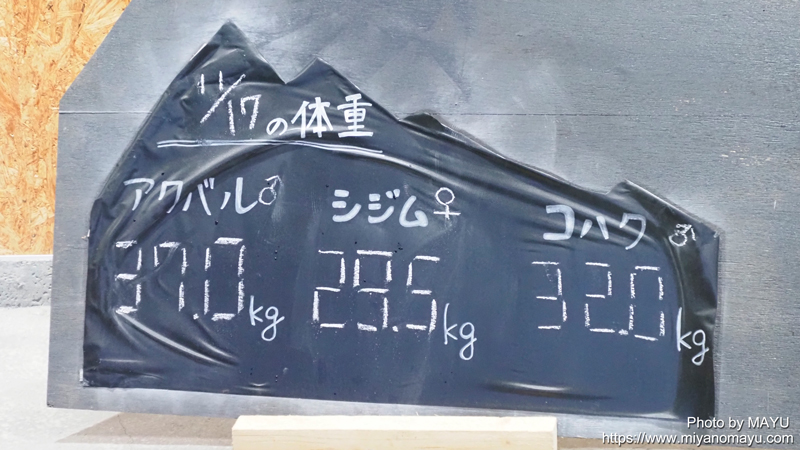 11/17の体重
アクバル♂
37.0kg
シジム♀
29.5kg
コハク♂
32.0kg
Photo by MAYU
https://www.miyanomayu.com/